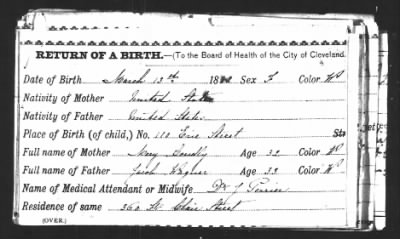 RETURN OF A BIRTH.—(To the Board of Health of the City of Cleveland.
Date of Birth March 13th 18 Sex F Color W
Nativity of Mother United States
Nativity of Father United Stats
Place of Birth (of child,) No. 111 Erie Street Str
Full name of Mother Mary Age 32 Color W
Full name of Father Wagner Age 33 Color W
Name of Medical Attendant or Midwife Dr J
Residence of same 360 St Clair Street
(OVER.)